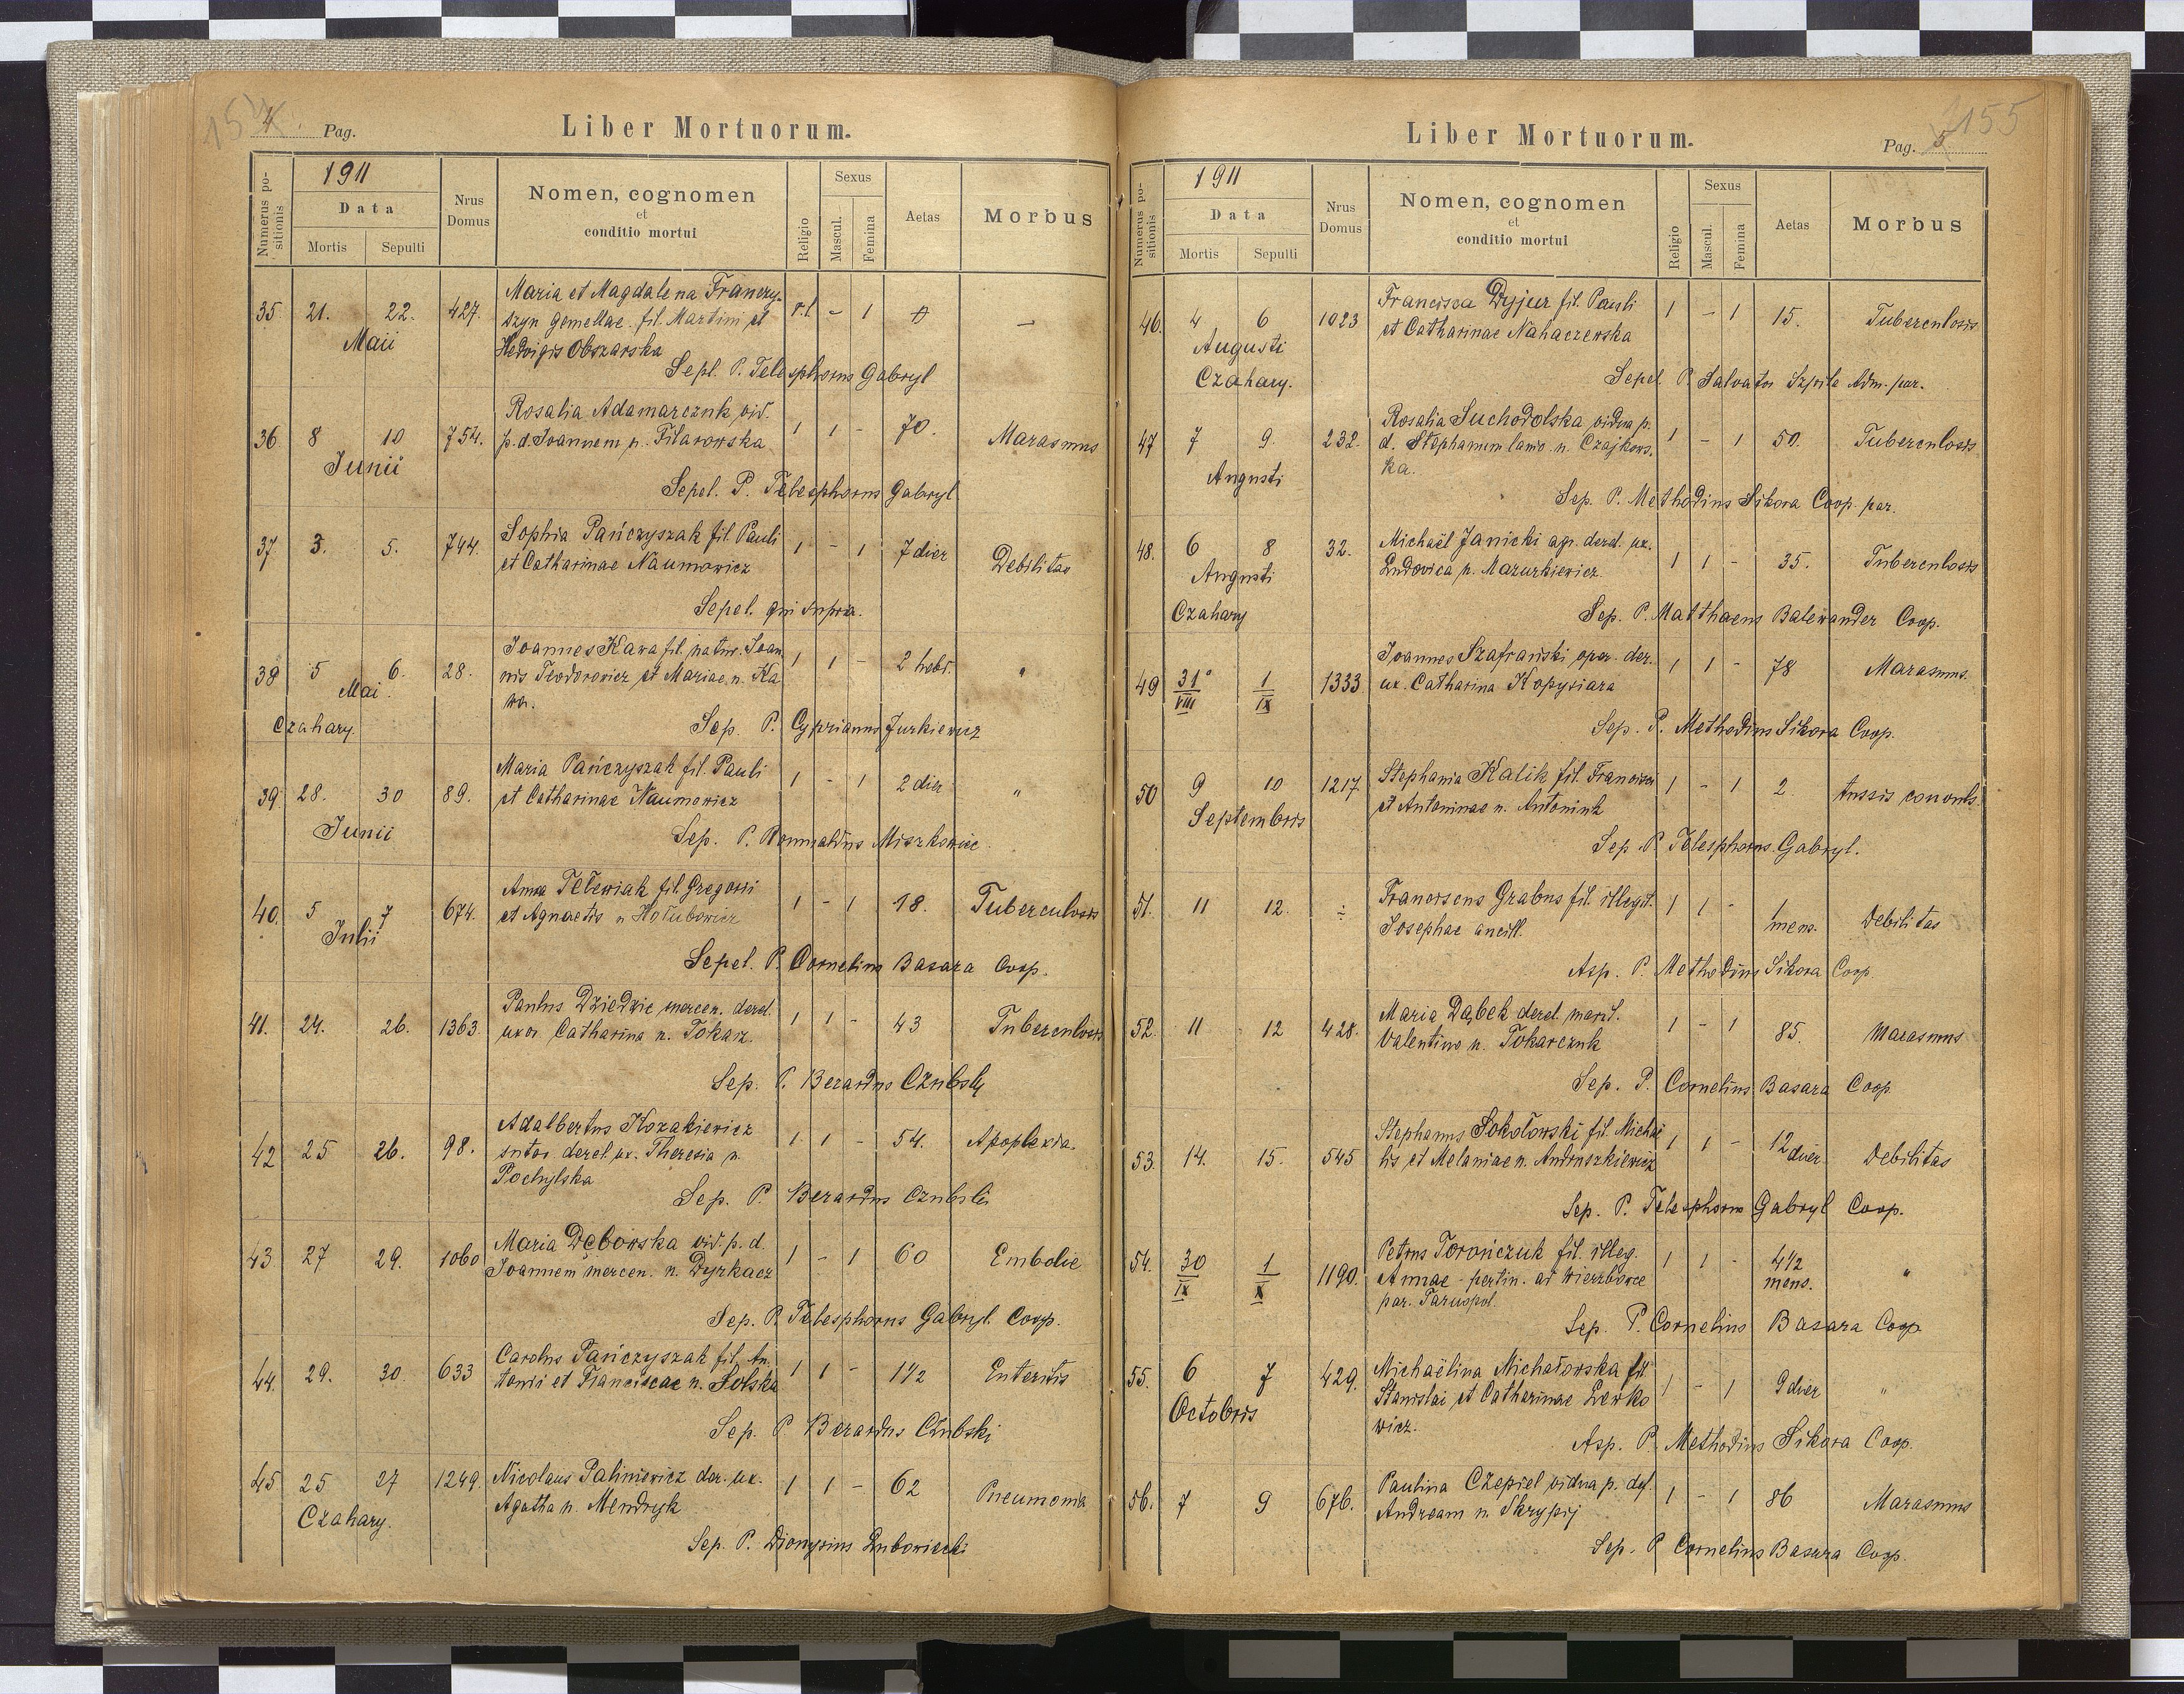 4 Pag.
Liber Mortuorum.
Numerus po-
sitionis
1911
Data
Mortis Sepulti
Nrus
Domus
Nomen, cognomen
et
conditio mortui
Religio
Sexus
Mascul. Femina
Aetas
Morbus
35. 21. 22. 427. Maria et Magdalena Franczy-
szyn gemellae. fil. Martini et r.l - 1 0 —
Maii Hedvigis Obszarska
Sepl. P. Telesphorus Gabryl
Rosalia Adamarczuk, vid.
36 8 10 754. p.d. Joannem n. Filarowska 1 1 - 70. Marasmus
Junii
Sepel. P. Telesphorus Gabryl
Sophia Pańczyszak fil. Pauli
37. 3. 5. 744. et Catharinae Naumowicz 1 - 1 7 dier Debilitas
Sepel. qui supra.
Joannes Kawa fil. natur. Joan
38 5 6. 28. nis Teodorowicz et Mariae n. Ka 1 1 - 2 hebd. "
Mai. wa.
Czahary. Sep. P. Cyprianus Jurkiewicz
Maria Pańczyszak fil. Pauli
39. 28. 30 89. et Catharinae Naumowicz 1 - 1 2 dier "
Junii Sep. P. Romualdus Miszkowiec
Anna Telewiak fil. Gregorii
40. 5 7 674. et Agnaetis n Hołubowicz 1 - 1 18. Tuberculosis
Julii
Sepel. P. Cornelius Basara Coop.
Paulus Dziedzic mercen. derel.
41. 24. 26. 1363. uxor Catharina n. Tokarz. 1 1 - 43 Tuberculosis
Sep. P. Berardus Czubsky
Adalbertus Kozakiewicz
42 25 26. 98. sutor derel. ux. Theresia n. 1 1 - 54. Apoplexia.
Pochylska
Sep. P. Berardus Czubski
Maria Dębowska vid. p. d.
43 27 29. 1060 Joannem mercen. n. Dyrkacz 1 - 1 60 Embolie
Sep. P. Telesphorus Gabryl. Coop.
Carolus Pańczyszak fil. An.
44. 29. 30. 633 tonii et Franciscae n. Solska 1 1 - 1 1/2 Enteritis
Sep. P. Berardus Czubski
45 25 27 1249. Nicolaus Paliniewicz der. ux. 1 1 - 62 Pneumonia
Czahary. Agatha n. Mendryk
Sep. P. Dionysius Lubowiecki
155
Liber Mortuorum.
Pag. 5
Numerus po-
sitionis
1911
Data
Mortis Sepulti
Nrus
Domus
Nomen, cognomen
et
conditio mortui
Religio
Sexus
Mascul. Femina
Aetas
Morbus
Francisca Dyjur fil. Pauli
46. 4 6 1023 et Catharinae Nahaczewska 1 - 1 15. Tuberculosis
Augusti
Czahary. Sepel. P. Salvator Szpila Adm. par.
Rosalia Suchodolska vidua p.
47 7 9. 232. d. Stephanum lanio. n. Czajkows. 1 - 1 50. Tuberculosis
Augusti ka.
Sep. P. Methodius Sikora Coop. par.
Michaël Janicki agr. derel. ux.
48. 6 8 32. Ludovica n. Mazurkiewicz. 1 1 - 35. Tuberculosis
Augusti
Czahary Sep. P. Matthaeus Balewander Coop.
Joannes Szafrański oper. der.
49 31 VIII 1 IX 1333 ux. Catharina Kopysiara 1 1 - 78 Marasmus.
Sep. P. Methodius Sikora Coop.
Stephania Kalik fil. Francisci
50 9 10 1217. et Antoninae n. Antoniuk 1 - 1 2. tussis convuls.
Septembris
Sep P. Telesphorus Gabryl.
51. 11 12. ÷ Franciscus Grabus fil. illegit. 1 1 - 1 mens. Debilitas
Josephae ancill.
Asp. P. Methodius Sikora Coop.
Maria Dąbek derel. marit.
52. 11 12 428. Valentino n. Tokarczuk 1 - 1 85. Marasmus
Sep. P. Cornelius Basara Coop.
Stephanus Sokołowski fil. Michaë
53. 14. 15. 545 lis et Melaniae n. Andruszkiewicz 1 1 - 12 dier. Debilitas
Sep. P. Telesphorus Gabryl Coop.
Petrus Torończuk fil. illeg.
54. 30 IX 1 X 1190. Annae - pertin. ad Wierzbowce 1 1 - 4 1/2 mens. "
par. Tarnopol.
Sep. P. Cornelius Basara Coop
55. 6 7 429. Michaëlina Michałowska fil 1 - 1 9 dier "
Octobris Stanislai et Catharinae Lewko
wicz.
Asp. P. Methodius Sikora Coop.
Paulina Czepiel vidua p. def.
56. 7 9 676. Andream n. Skrypij 1 - 1 86 Marasmus
Sep. P Cornelius Basara Coop.